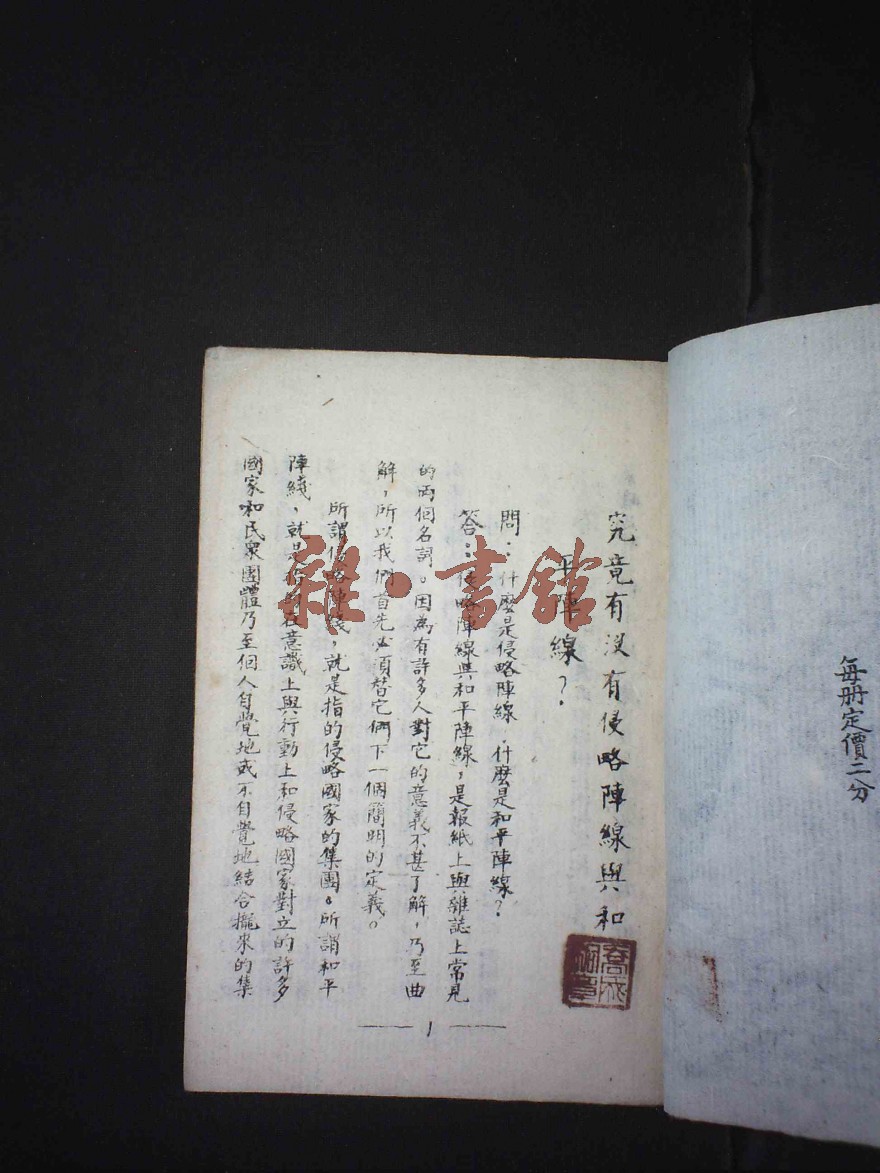 每册定價二分
究竟有没有侵略陣線與和
平陣線？
問：什麼是侵略陣線，什麼是和平陣線？
答：侵略陣線與和平陣線，是報紙上與雜誌上常見
的兩個名詞。因為有許多人對它的意義不甚了解，乃至曲
解，所以我們首先必須替它們下一個簡明的定義。
所謂侵略陣綫，就是指的侵略國家的集團。所謂和平
陣綫，就是指的在意識上與行動上和侵略國家對立的許多
國家和民衆團體乃至個人自覺地或不自覺地結合攏來的集
1
雜·書館